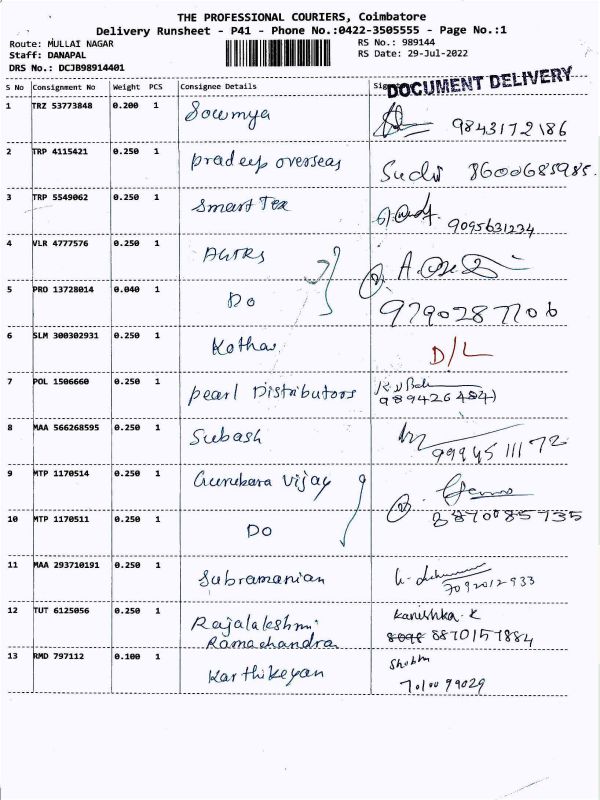 THE PROFESSIONAL COURIERS, Coimbatore
Delivery Runsheet - P41 - Phone No.:0422-3505555 - Page No.:1
Route: MULLAI NAGAR RS No.: 989144
Staff: DANAPAL RS Date: 29-Jul-2022
DRS No.: DCJB98914401
DOCUMENT DELIVERY
S No Consignment No Weight PCS Consignee Details
1 TRZ 53773848 0.200 1 Soumya 9843172186
2 TRP 4115421 0.250 1 pradeep overseas 8600685985.
3 TRP 5549062 0.250 1 Smart Tex 9095631234
4 VLR 4777576 0.250 1
5 PRO 13728014 0.040 1 Do 9790287706
6 SLM 300302931 0.250 1 Kothar D/L
7 POL 1506660 0.250 1 pearl Distributors
8 MAA 566268595 0.250 1 Subash
9 MTP 1170514 0.250 1 Vijay
10 MTP 1170511 0.250 1 Do 8870085735
11 MAA 293710191 0.250 1 Subramanian 7092012933
12 TUT 6125056 0.250 1 Rajalakshmi Kanishka. K
Ramachandra 8870157884
13 RMD 797112 0.100 1 Karthikeyan
7010099029